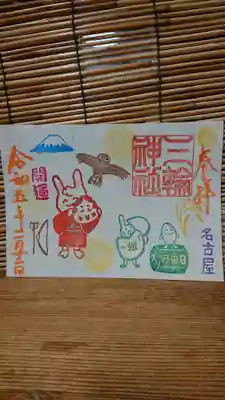 奉拝
三輪
神社
名古屋
開運
令和五年一月二日